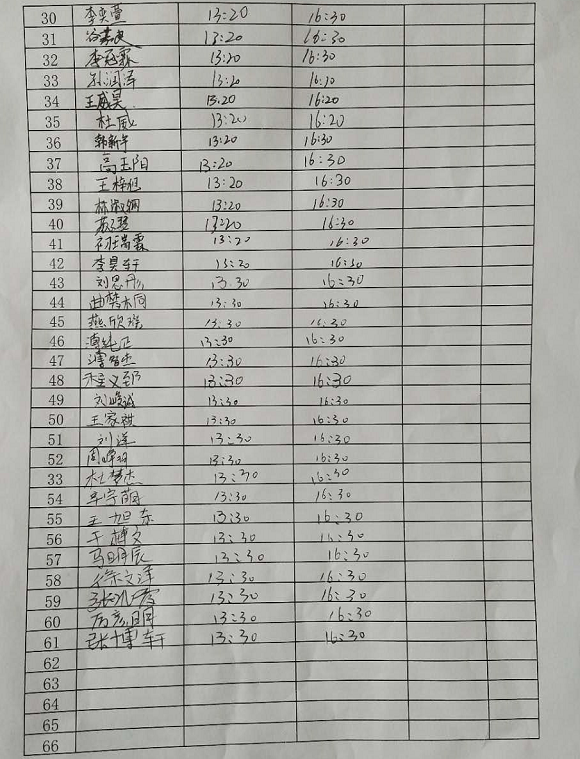 30 李奕萱 13:20 16:30
31 13:20 16:30
32 李冠霖 13:20 16:30
33 孙润泽 13:20 16:30
34 王威昊 13.20 16:20
35 杜威 13:20 16:20
36 韩新宇 13:20 16:30
37 高玉阳 13:20 16:30
38 王梓恒 13:20 16:30
39 林淑娴 13:20 16:30
40 13:20 16:30
41 13:20 16:30
42 李昊轩 13:20 16:30
43 刘思彤 13.30 16:30
44 曲梦桐 13:30 16:30
45 燕欣瑶 13:30 16:30
46 13:30 16:30
47 13:30 16:30
48 13:30 16:30
49 刘峻诚 13:30 16:30
50 王家祺 13:30 16:30
51 刘洋 13:30 16:30
52 13:30 16:30
33 杜梦杰 13:30 16:30
54 13:30 16:30
55 王旭东 13:30 16:30
56 于博文 13:30 16:30
57 马明辰 13:30 16:30
58 徐文泽 13:30 16:30
59 13:30 16:30
60 13:30 16:30
61 张博轩 13:30 16:30
62
63
64
65
66